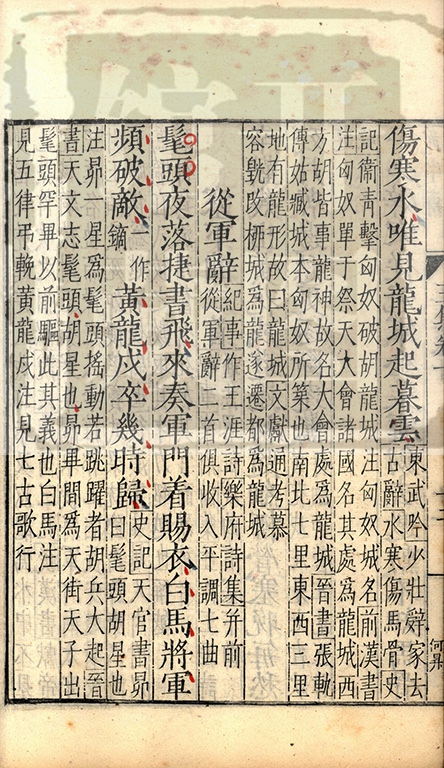 傷寒水唯見龍城起暮雲東武吟少壯辭家去
古辭水寒傷馬骨史
記衛青擊匈奴破胡龍城注匈奴城名前漢書
注匈奴單于祭天大會諸國名其處爲龍城西
方胡皆事龍神故名大會處爲龍城晉書張軌
傳姑臧城本匈奴所築也南北七里東西三里
地有龍形故曰龍城文獻通考慕
容皝改柳城爲龍遂遷都爲龍城
從軍辭紀事作王涯詩樂府詩集并前
從軍辭二首俱收入平調七曲
髦頭夜落捷書飛來奏軍門着賜衣白馬將軍
頻破敵一作鏑黃龍戍卒幾時歸史記天官書昴
曰髦頭胡星也
注昴一星爲髦頭搖動若跳躍者胡兵大起晉
書天文志髦頭胡星也昴畢間爲天街天子出
髦頭罕畢以前驅此其義也白馬注
見五律平輓黃龍戍注見七古歌行